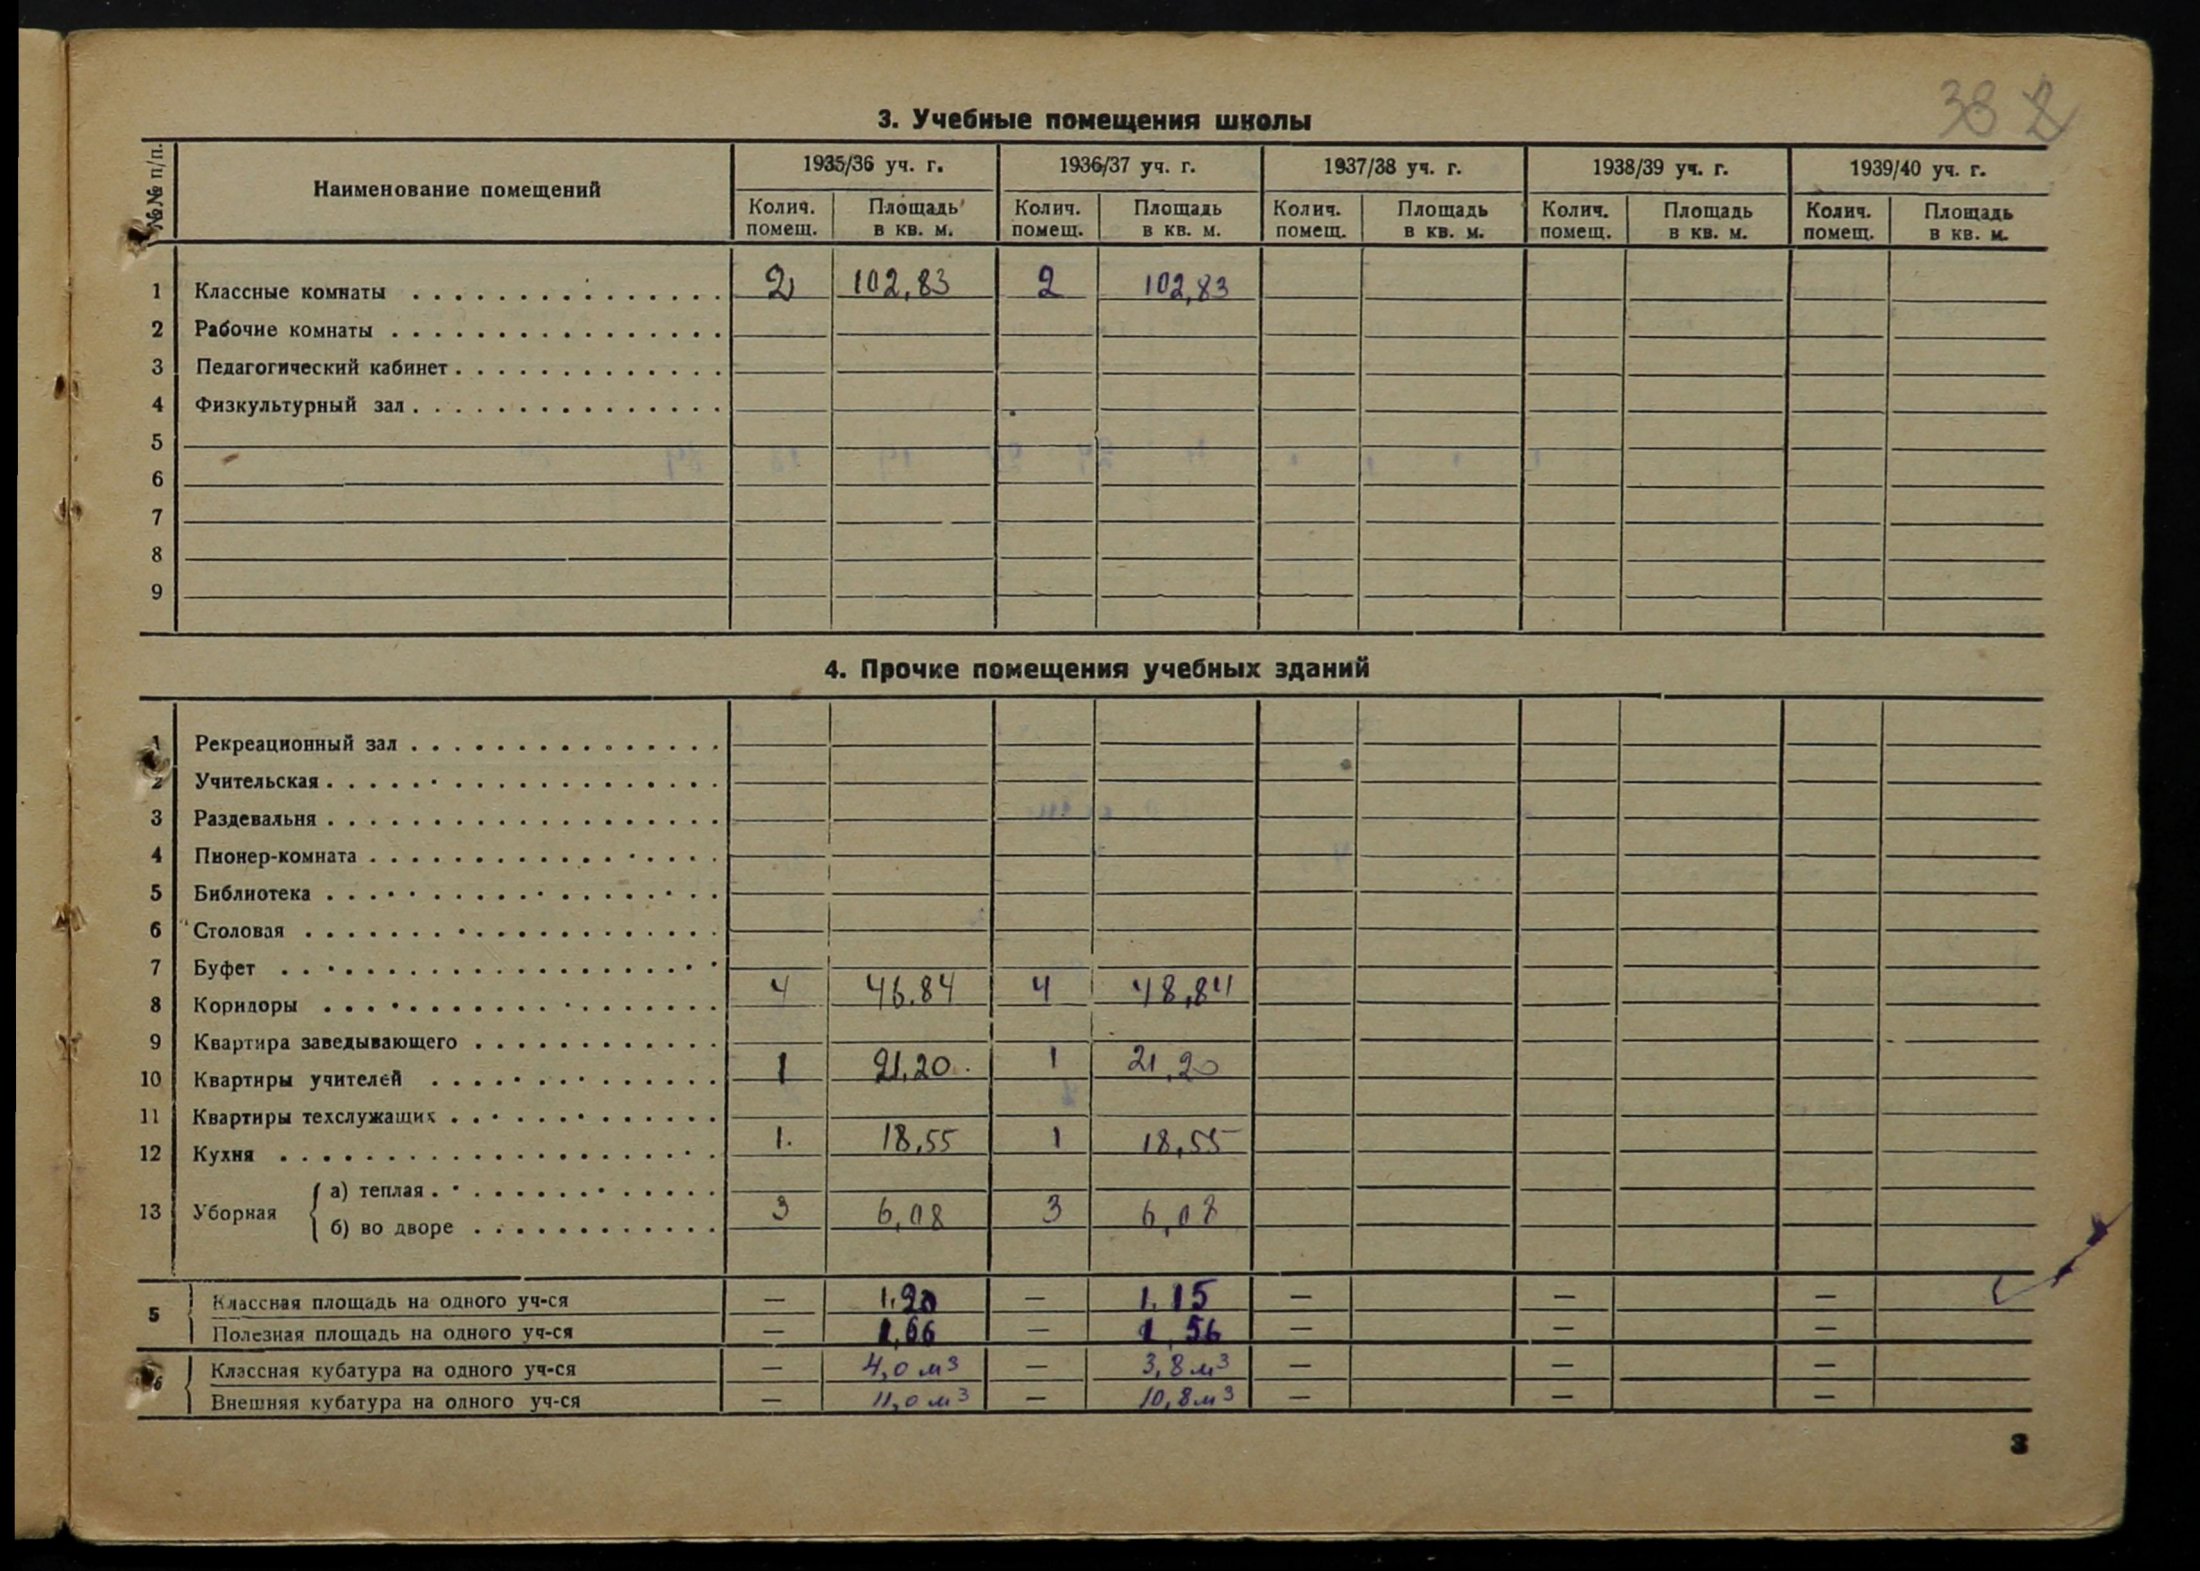 38 2
3. Учебные помещения школы
№№ п/п. Наименование помещений 1935/36 уч. г. 1936/37 уч. г. 1937/38 уч. г. 1938/39 уч. г. 1939/40 уч. г.
Колич. помещ. Площадь в кв. м. Колич. помещ. Площадь в кв. м. Колич. помещ. Площадь в кв. м. Колич. помещ. Площадь в кв. м. Колич. помещ. Площадь в кв. м.
1 Классные комнаты 2 102,83 2 102,83
2 Рабочие комнаты
3 Педагогический кабинет
4 Физкультурный зал
5
6
7
8
9
4. Прочке помещения учебных зданий
1 Рекреационный зал
2 Учительская
3 Раздевальня
4 Пионер-комната
5 Библиотека
6 Столовая
7 Буфет
8 Коридоры 4 46.84 4 48,84
9 Квартира заведывающего
10 Квартиры учителей 1 21,20. 1 21,20
11 Квартиры техслужащих
12 Кухня 1. 18,55 1 18,55
13 Уборная а) теплая
б) во дворе 3 6,08 3 6,08
5 Классная площадь на одного уч-ся — 1.20 — 1.15 — — —
Полезная площадь на одного уч-ся — 1,66 — 1 56 — — —
6 Классная кубатура на одного уч-ся — 4,0 м³ — 3,8 м³ — — —
Внешняя кубатура на одного уч-ся — 11,0 м³ — 10,8 м³ — — —
3